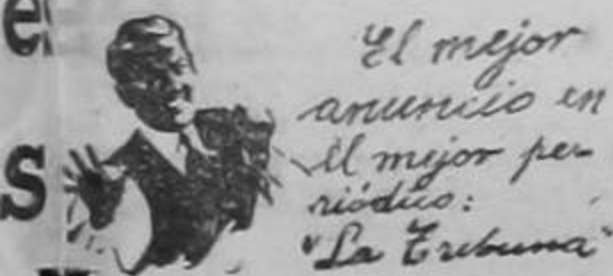 e
s
El mejor
anuncio en
el mejor pe-
riódico:
"La Tribuna"